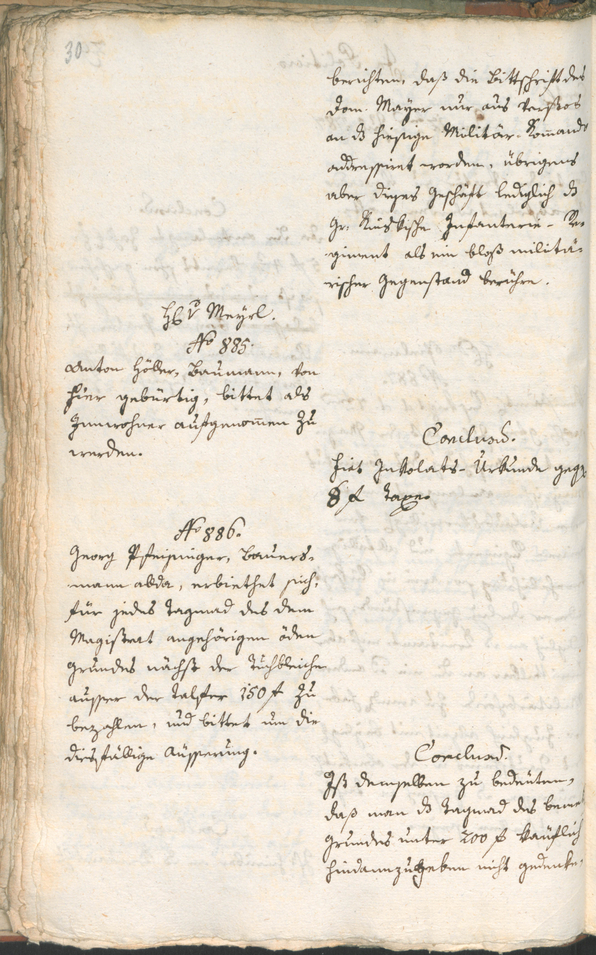 30
berichten, daß die Bittschrift des
Dom. Mayer nur aus Verstos
an d hiesige Militär-Kommando
addressiret worden, übrigens
aber dieses Geschäft lediglich d
Infanterie-Re-
giment als ein bloß militä-
rischer Gegenstand berühre.
H. v. Meyrl.
No 885.
Anton Höller, Baumann, von
hier gebürtig, bittet als
Innwohner aufgenommen zu
werden.
Conclusu.
Fiat Inkolats-Urkunde gegen
8 f Taxe.
No 886.
Georg Pfeisinger, Bauers-
mann alda, erbiethet sich,
für jedes Tagmad des dem
Magistrat angehörigen öden
Grundes nächst der Tuchbleiche
ausser der Talfer 150 f zu
bezahlen, und bittet um die
diesfällige Äusserung.
Conclusu.
Ist demselben zu bedeuten,
daß man d Tagmad des
Grundes unter 200 f käuflich
hindannzugeben nicht gedenke.